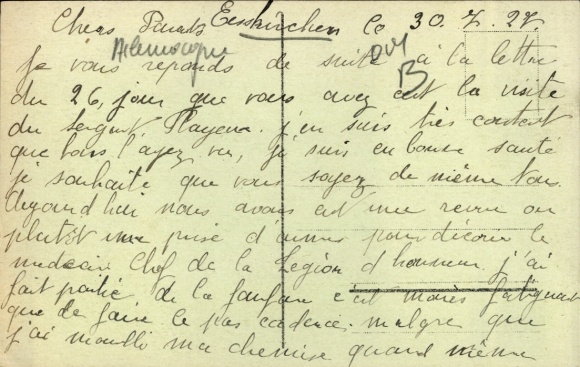 Chers Parents Euskirchen le 30. 7. 27.
Allemagne
Je vous réponds de suite à la lettre
B
du 26, jour que vous avez eut la visite
du Sergent, Mayeur. j'en suis très content
que vous l'ayez vu, je suis en bonne santé
je souhaite que vous soyez de même tous.
Aujourd'hui nous avons eut une revue ou
plutôt une prise d'armes pour décorer le
medecin Chef de la Légion d'honneur. j'ai
fait partie de la fanfare c'est moins fatiguant
que de faire le pas cadencé. malgre que
j'ai mouillé ma chemise quand même